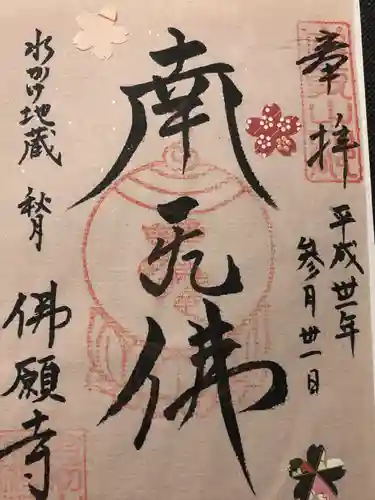 奉拝
平成丗一年
参月丗一日
南无佛
水かけ地蔵 秋月
佛願寺